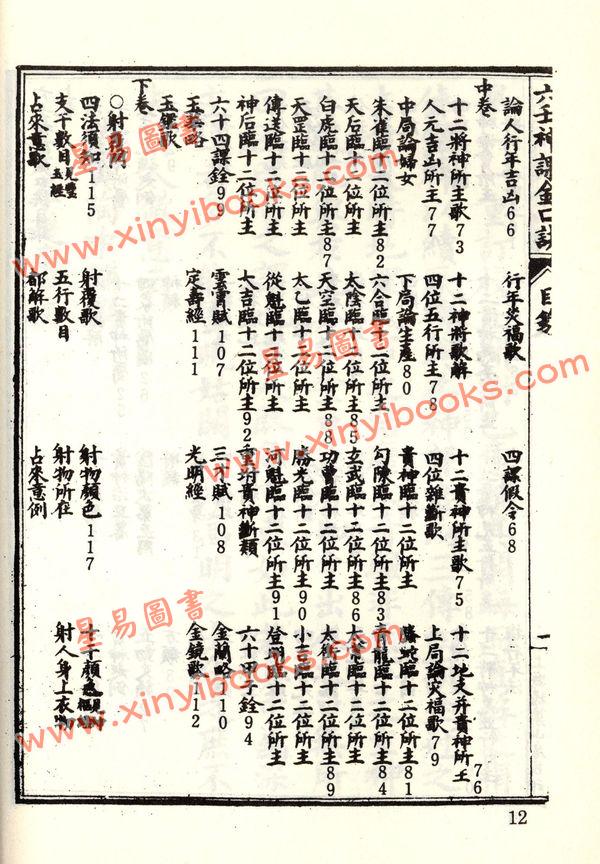 六壬神課金口訣 目錄 二
論人行年吉凶66 行年灾福歌 四課假令68
中卷
十二將神所主歌73 十二神將歌解 十二貴神所主歌75 十二地支并貴神所主76
人元吉凶所主77 四位五行所主78 四位雜斷歌 上局論灾福歌79
中局論婦女 下局論生產80 貴神臨十二位所主 螣蛇臨十二位所主81
朱雀臨十二位所主82 六合臨十二位所主 勾陳臨十二位所主83 青龍臨十二位所主84
天后臨十二位所主 太陰臨十二位所主85 玄武臨十二位所主86 太常臨十二位所主
白虎臨十二位所主87 天空臨十二位所主88 功曹臨十二位所主 太衝臨十二位所主89
天罡臨十二位所主 太乙臨十二位所主 勝光臨十二位所主90 小吉臨十二位所主
傳送臨十二位所主 從魁臨十二位所主 河魁臨十二位所主91 登明臨十二位所主
神后臨十二位所主 大吉臨十二位所主92 貴神斷類 六十甲子銓94
六十四課銓99 雲霄賦107 三才賦108 金蘭略110
玉 略 定壽經111 光明經 金鏡歌112
玉 歌
下卷
○射
四法須知115 射覆歌 射物顏色117 十干顏色
支干數目 五行數目 射物所在 射人身上衣物
占來意歌 都解歌 占來意例
12
星易圖書
www.xinyibooks.com
星易圖書
www.xinyibooks.com
星易圖書
www.xinyibooks.com
星易圖書
www.xinyibooks.com